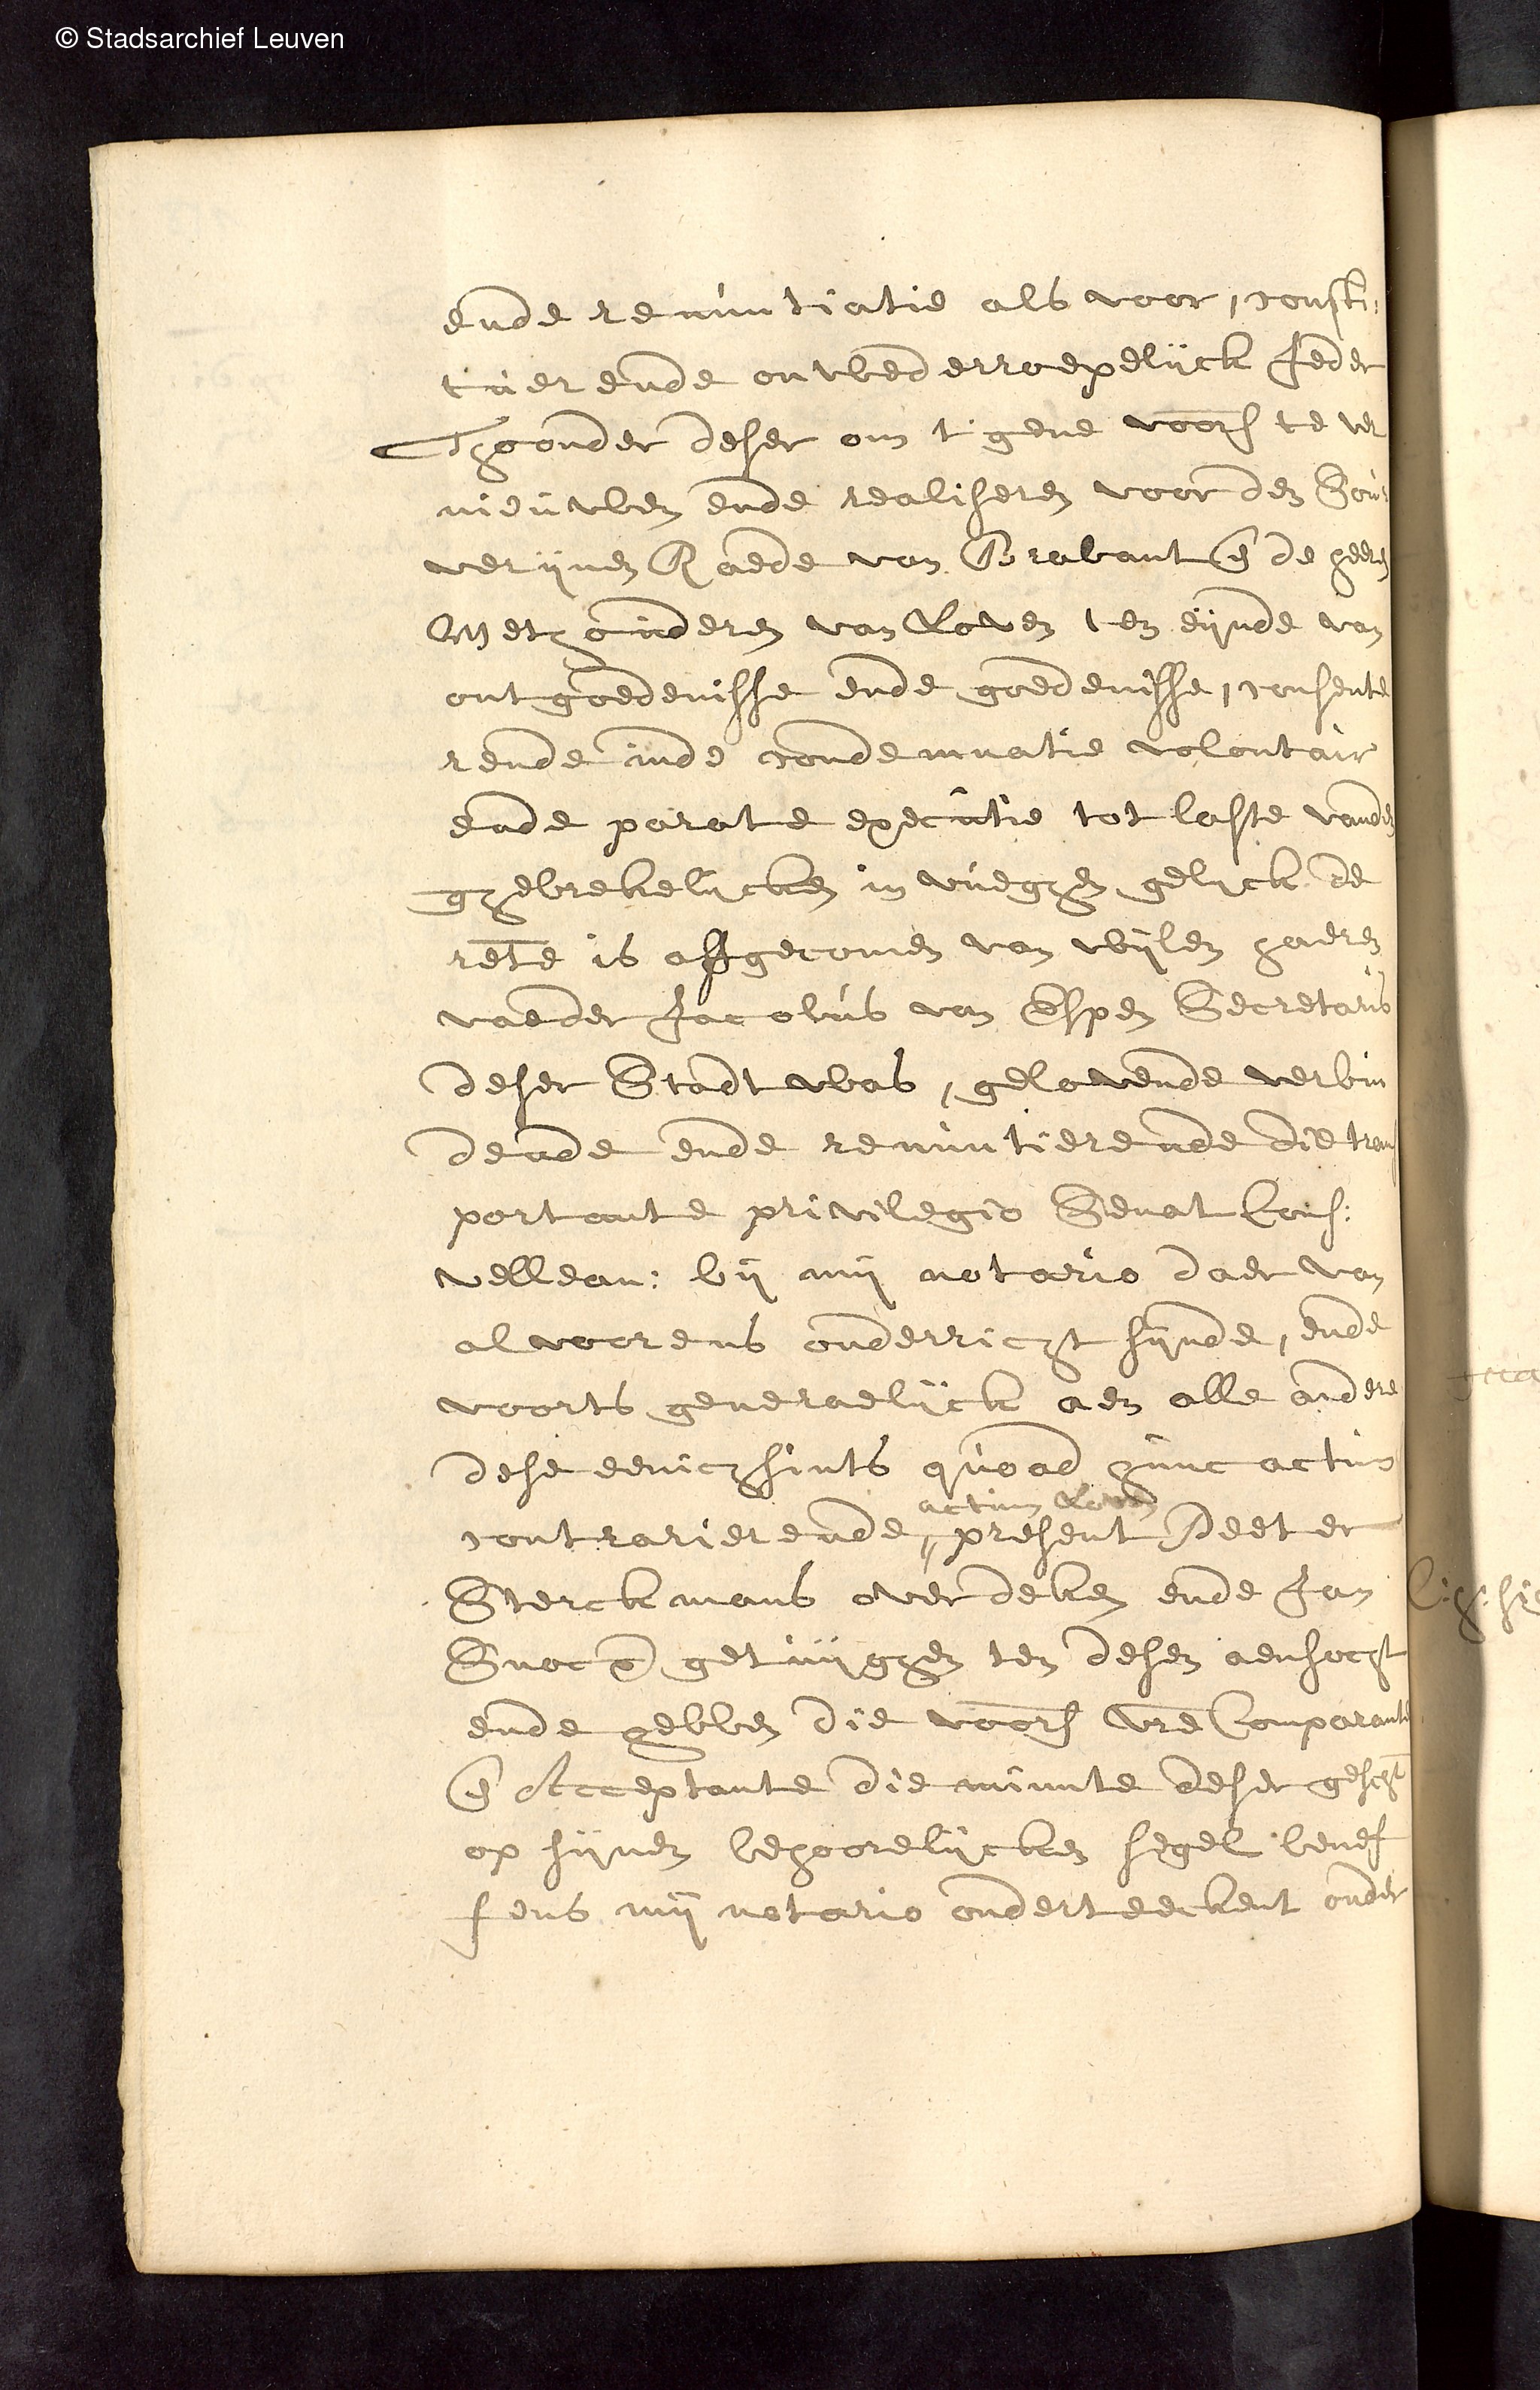 © Stadsarchief Leuven
ende renuntiatie als voor, consti:
tuerende onwederroepelijck Jeder
Thoonder deser om t'gene voors te ver
nieuwen ende realiseren voor den Sou
verijnen Raede van Brabant en de heeren
Methouderen van Loven ten eijnde van
ontgoedenisse ende goedenisse, consente
rende inde condemnatie volontair
ende parate executie tot laste vanden
ghebrekelijcken in vueghen gelijck de
rente is affgecomen van wijlen haeren
vaeder Jacobus van Espen Secretaris
deser Stadt was, gelovende verbin
dende ende renuntierende die trans
portante privilegio Senat Cons:
vellean: bij mij notario daer van
alvoorens onderricht sijnde, ende
voorts generaelijck aen alle andere
dese eenichsints quoad hunc actum
actum Loven
contrarierende, present Peeter
Sterckmans overdeken ende Jan
Snoex getuijghen ten desen aensocht
ende hebben die voors vre Comparante
en Acceptante die minute deser gescht
op sijnen behoorelijcken segel benef
fens mij notario onderteeckent onder